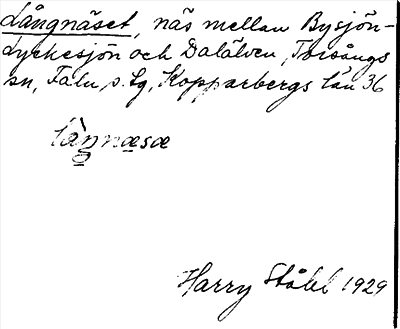 Långnäset, näs mellan Bysjön-
Lyckesjön och Dalälven, Torsångs
sn, Falu s. lg, Kopparbergs län 36
làŋnæsæ
Harry Ståhl 1929